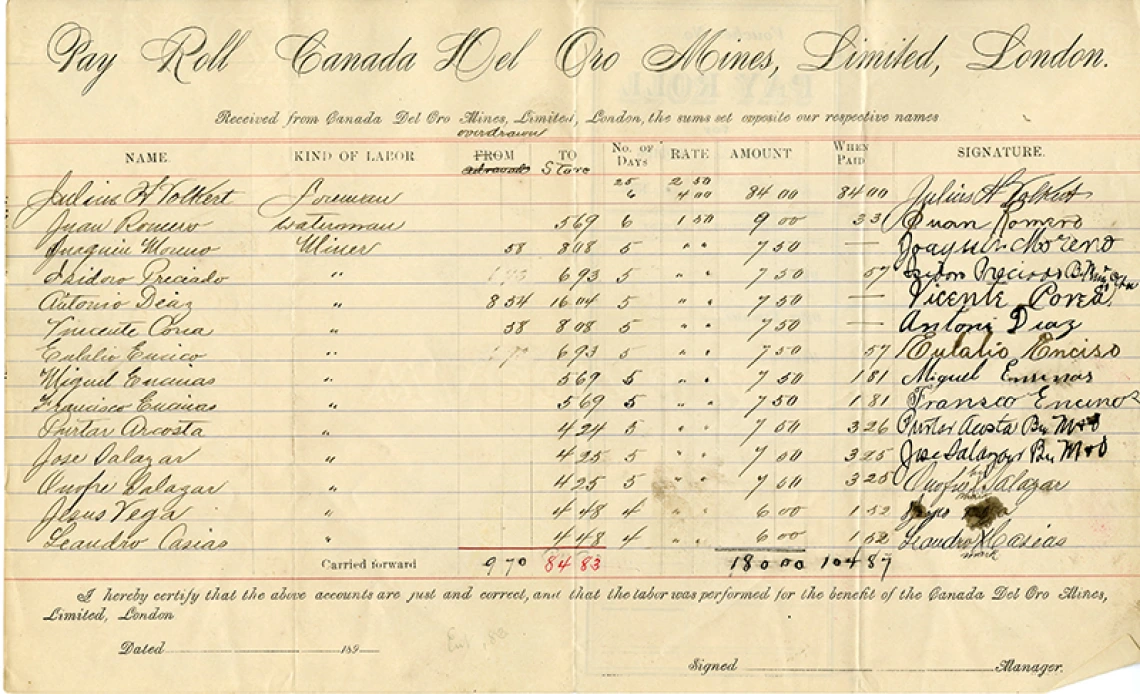 Pay Roll Canada Del Oro Mines, Limited, London.
Received from Canada Del Oro Mines, Limited, London, the sums set opposite our respective names
overdrawn
NAME. KIND OF LABOR FROM TO No. OF DAYS RATE AMOUNT WHEN PAID SIGNATURE.
advanced Store
25 2 50
Julius H Volkert Foreman 6 4 00 84 00 84 00 Julius H Volkert
Juan Romero Waterman 5 69 6 1 50 9 00 33 Juan Romero
Joaquin Moreno Miner 58 8 08 5 " " 7 50 — Joaquin Moreno
Isidoro Preciado " 6 93 5 " " 7 50 57 Isidoro Preciado
Antonio Diaz " 8 54 16 04 5 " " 7 50 — Vicente Corea
Vincente Coria " 58 8 08 5 " " 7 50 — Antoni Diaz
Eulalio Encico " 6 93 5 " " 7 50 57 Eulalio Enciso
Miguel Encinas " 5 69 5 " " 7 50 1 81 Miguel Ensinas
Francisco Encinas " 5 69 5 " " 7 50 1 81 Fransco Encinos
Arcosta " 4 24 5 " " 7 50 3 26 Acosta By M+O
Jose Salazar " 4 25 5 " " 7 50 3 25 Jose Salazar By M+O
Onofre Salazar " 4 25 5 " " 7 50 3 25 Onofre X Salazar
mark
Jesus Vega " 4 48 4 " " 6 00 1 52
Leandro Casias " 4 48 4 " " 6 00 1 52 Leandro X Casias
mark
Carried forward 9 70 84 83 180 00 104 87
I hereby certify that the above accounts are just and correct, and that the labor was performed for the benefit of the Canada Del Oro Mines,
Limited, London
Dated 189
Signed Manager.